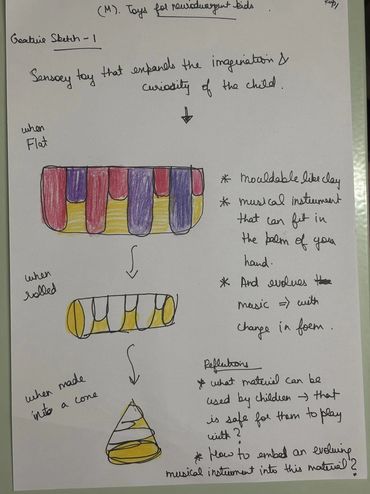 (M). Toys for neurodivergent kids.
Creative Sketch - 1
Sensory toy that expands the imagination &
curiosity of the child.
when
Flat
* Mouldable like clay
* musical instrument
that can fit in
the palm of your
hand.
* And evolves
music => with
change in form.
when
rolled
when made
into a cone
Reflections
* what material can be
used by children → that
is safe for them to play
with?
* How to embed an evolving
musical instrument into this material?